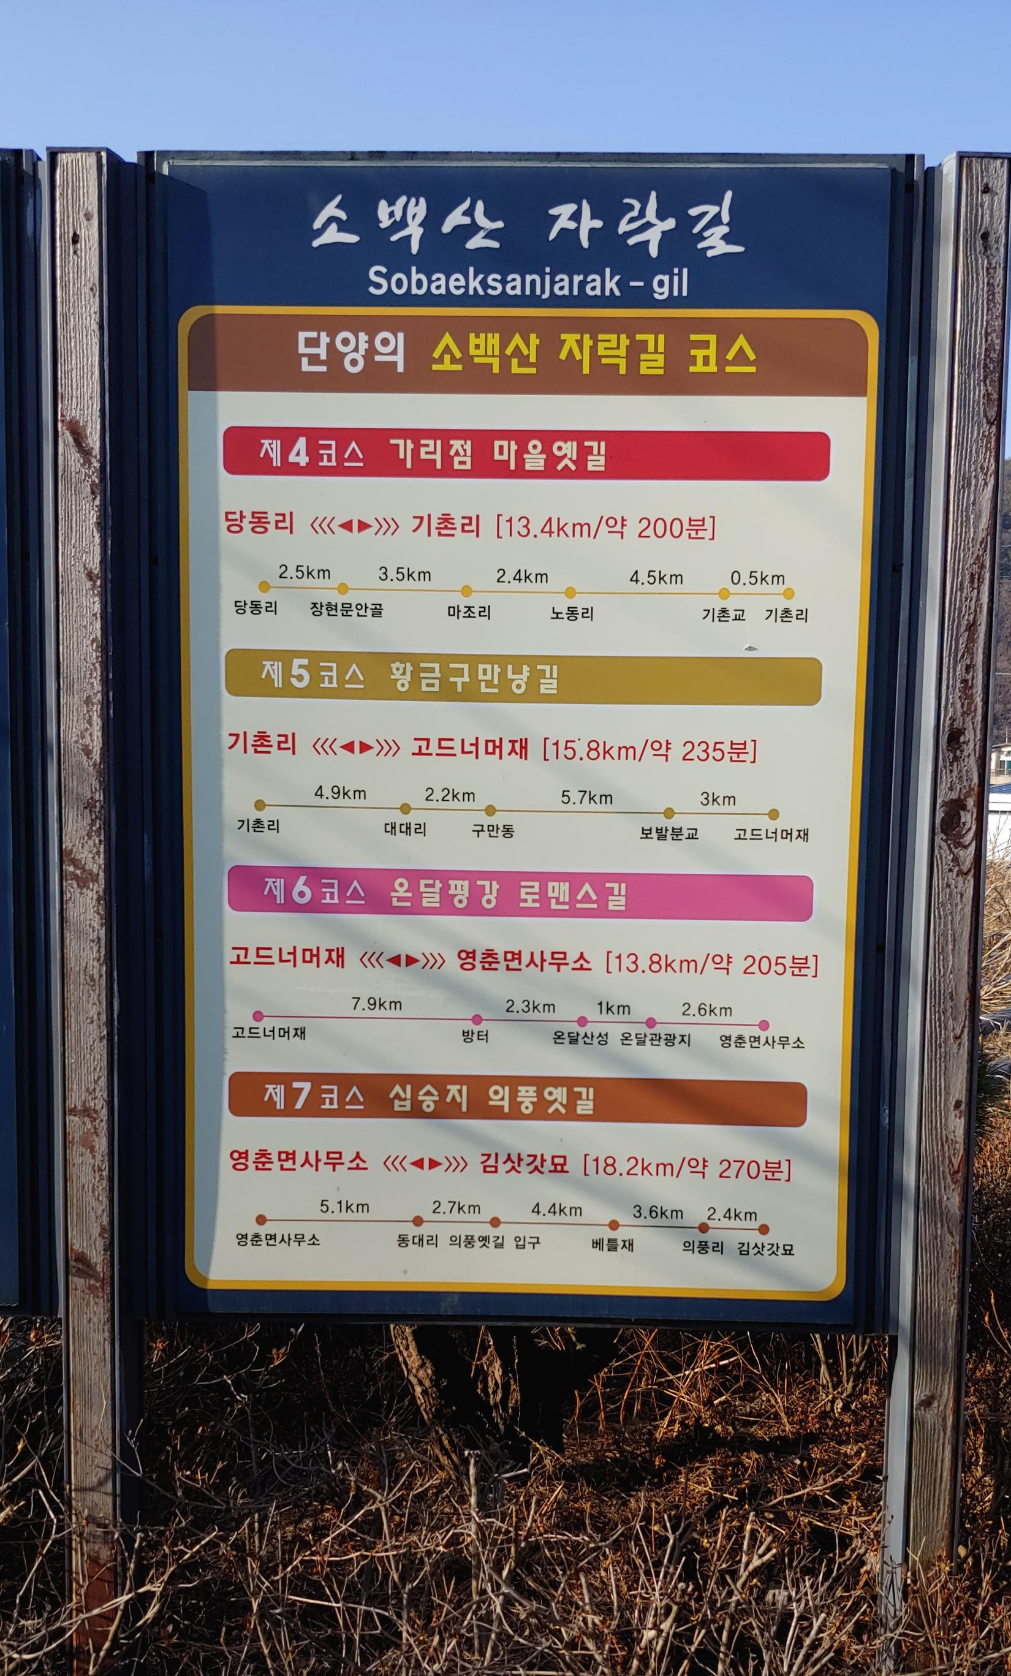 소백산 자락길
Sobaeksanjarak - gil
단양의 소백산 자락길 코스
제4코스 가리점 마을옛길
당동리 <<<◀▶>>> 기촌리 [13.4km/약 200분]
2.5km 3.5km 2.4km 4.5km 0.5km
당동리 장현문안골 마조리 노동리 기촌교 기촌리
제5코스 황금구만냥길
기촌리 <<<◀▶>>> 고드너머재 [15.8km/약 235분]
4.9km 2.2km 5.7km 3km
기촌리 대대리 구만동 보발분교 고드너머재
제6코스 온달평강 로맨스길
고드너머재 <<<◀▶>>> 영춘면사무소 [13.8km/약 205분]
7.9km 2.3km 1km 2.6km
고드너머재 방터 온달산성 온달관광지 영춘면사무소
제7코스 십승지 의풍옛길
영춘면사무소 <<<◀▶>>> 김삿갓묘 [18.2km/약 270분]
5.1km 2.7km 4.4km 3.6km 2.4km
영춘면사무소 동대리 의풍옛길 입구 베틀재 의풍리 김삿갓묘